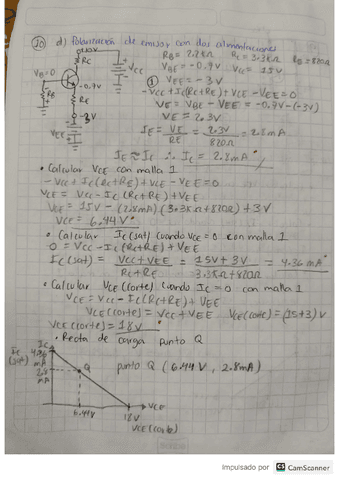 10) d) Polarización de emisor con dos alimentaciones
RB = 2.2KΩ RC = 3.3KΩ RE = 820Ω
VBE = -0.7V VCC = 15V
VEE = -3V
-VCC + IC(RC+RE) + VCE - VEE = 0
VE = VBE - VEE = -0.7V - (-3V)
VE = 2.3V
IE = VE/RE = 2.3V/820Ω = 2.8mA
IE ≈ IC ∴ IC = 2.8mA
RC
VCC
VB=0
-0.7V
RB
RE
-3V
VEE
• Calcular VCE con malla 1
-VCC + IC(RC+RE) + VCE - VEE = 0
VCE = VCC - IC(RC+RE) + VEE
VCE = 15V - (2.8mA)(3.3KΩ + 820Ω) + 3V
VCE = 6.44V
• Calcular IC(sat) cuando VCE = 0 con malla 1
0 = VCC - IC(RC+RE) + VEE
IC(sat) = VCC + VEE / RC + RE = 15V + 3V / 3.3KΩ + 820Ω = 4.36mA
• Calcular VCE(corte) cuando IC = 0 con malla 1
VCE = VCC - IC(RC+RE) + VEE
VCE(corte) = VCC + VEE VCE(corte) = (15+3)V
VCE(corte) = 18V
• Recta de carga punto Q
IC
IC(sat)
4.36 mA
2.8 mA
Q
punto Q (6.44V, 2.8mA)
6.44V
18V
VCE
VCE(corte)
Impulsado por CS CamScanner